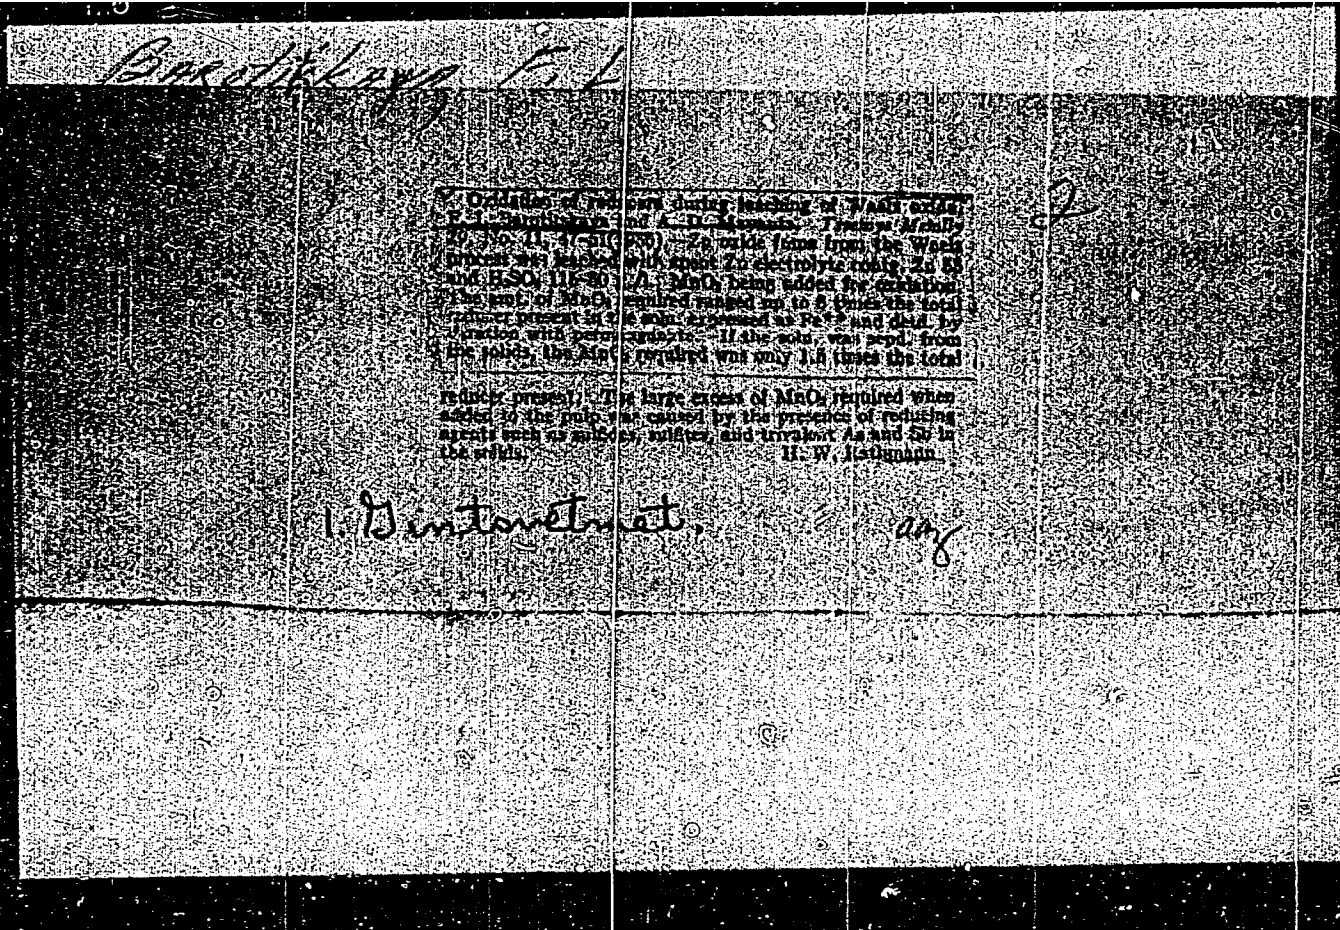 F. L
2
Oxidation of reducers during leaching of Waelz oxide.
and A. D. Tsvetnye Metally
No. 11, Zn oxide from the Waelz
process was leached with spent Zn electrolyte contg. Zn
and H₂SO₄ MnO₂ being added for oxidation.
The amt. of MnO₂ required ranged up to 6 times the total
reducer present in the soln. expressed as Fe++ and detd. by
titration with permanganate. If the soln. was sepd. from
the solids, the MnO₂ required was only 1.5 times the total
reducer present. The large excess of MnO₂ required when
added to the pulp was caused by the presence of reducing
agents such as sulfides, sulfites, and trivalent As and Sb in
the solids. H. W. Rathmann
1. Gintsvetmet.